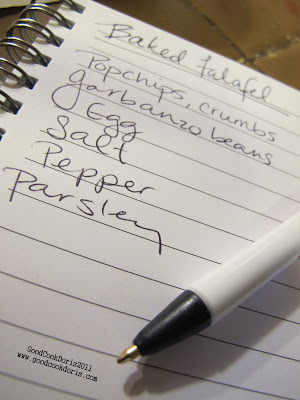 Baked falafel
Popchips, crumbs
garbanzo beans
Egg
Salt
Pepper
Parsley
GoodCookDoris2011
www.goodcookdoris.com